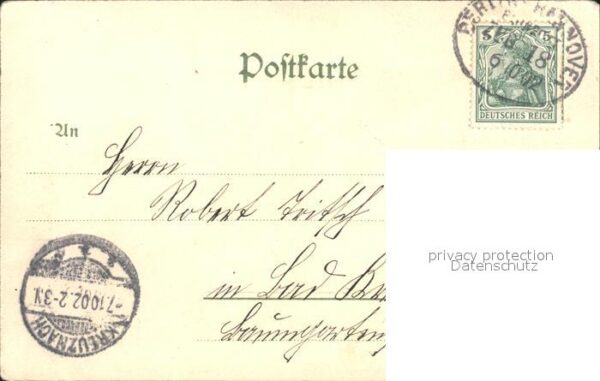 BERLIN HANNOVER
ZUG 18
6 10 02
DEUTSCHES REICH
Postkarte
An
Herrn
Robert Fritsch
privacy protection
Datenschutz
in Bad
Baumgarten
KREUZNACH
-7.10.02.2-3N.